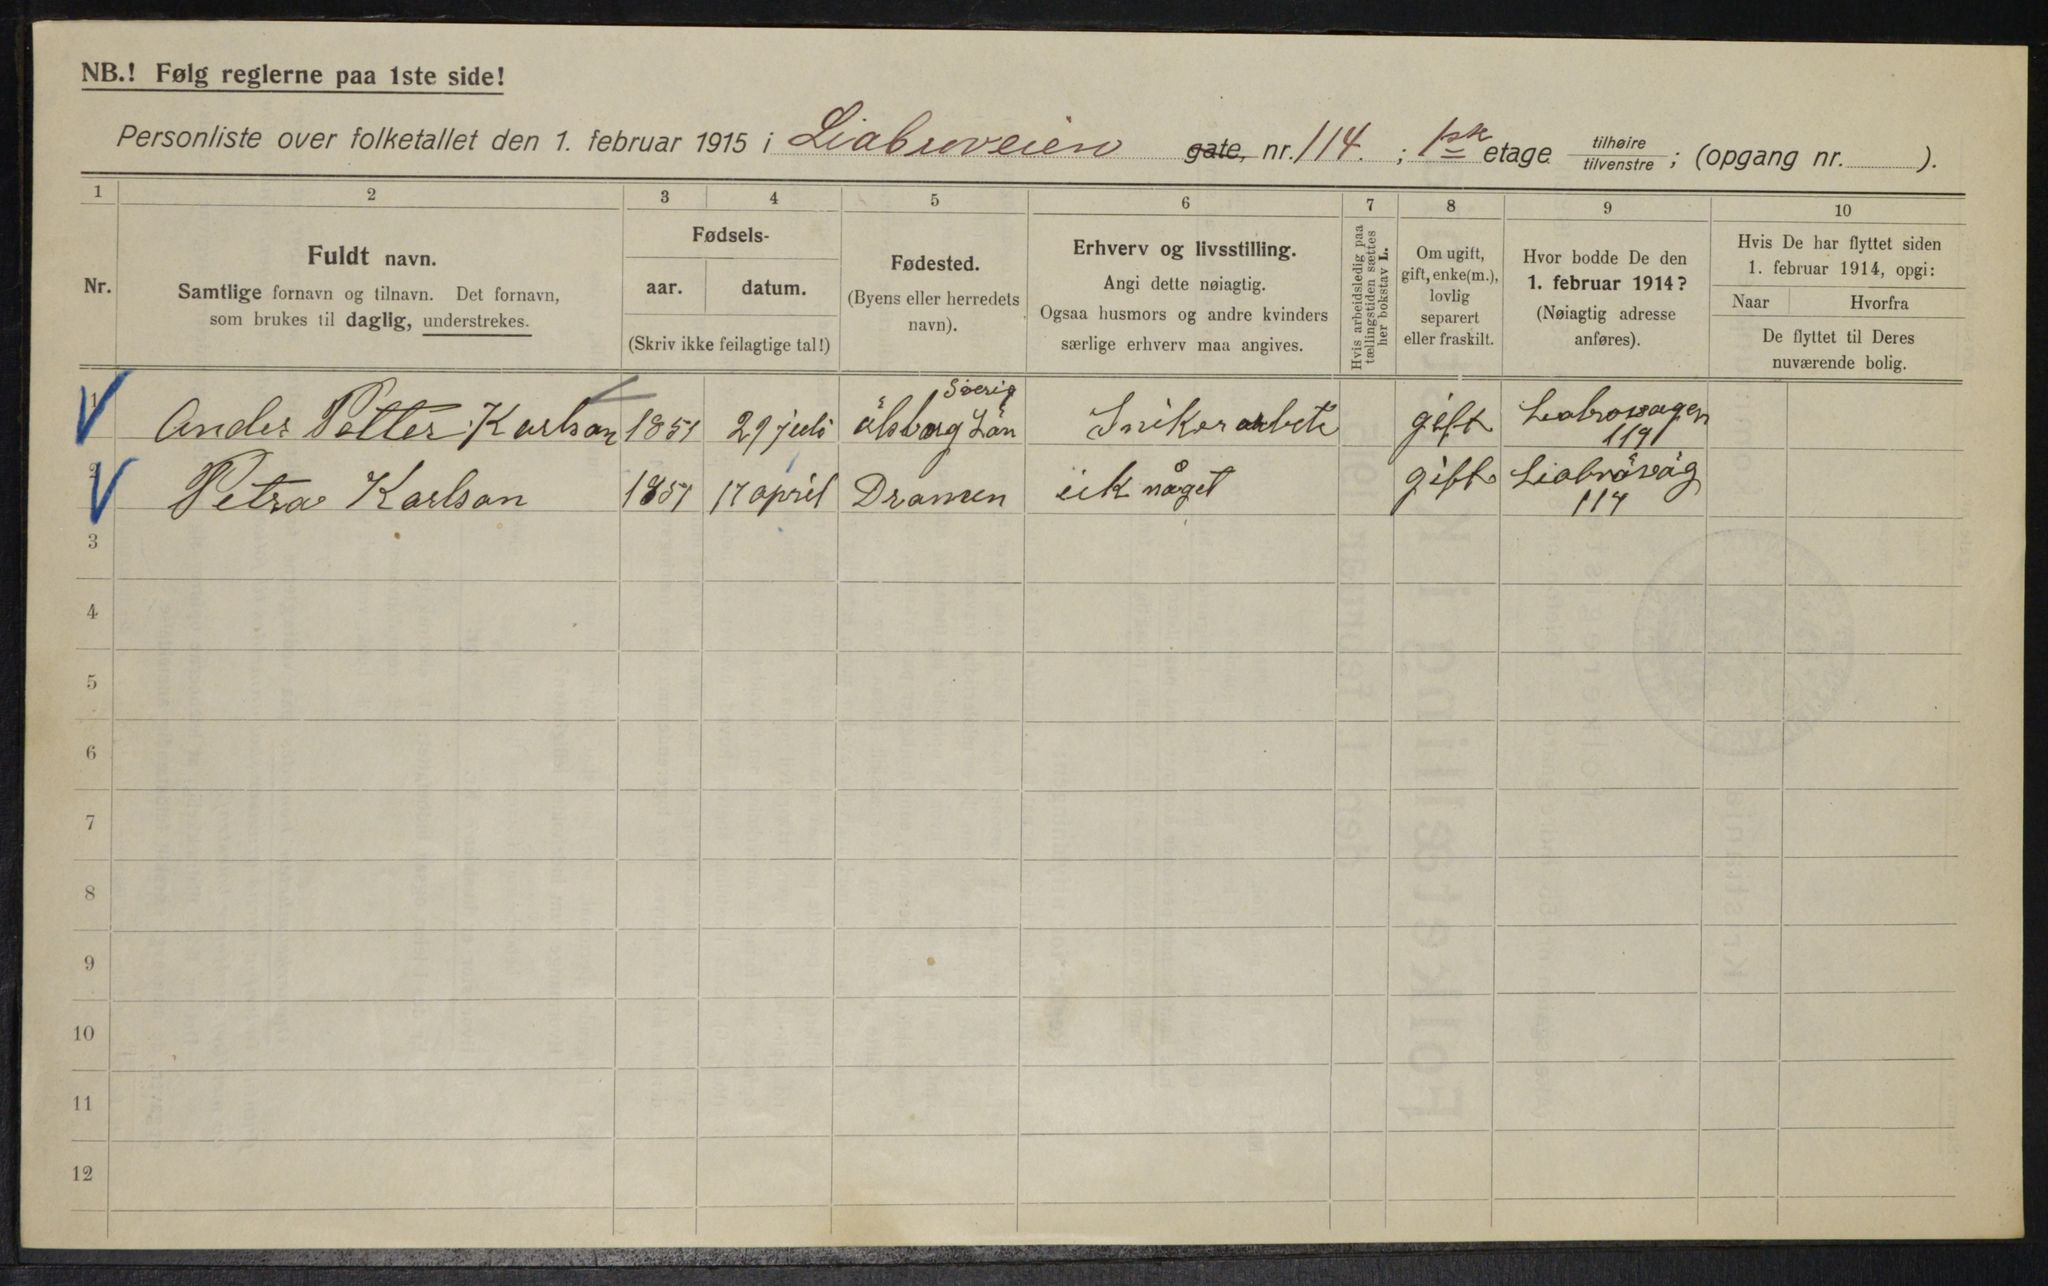 NB.! Følg reglerne paa 1ste side!
Personliste over folketallet den 1. februar 1915 i Liabruveien gate, nr. 114. ; 1ste etage tilhøire tilvenstre ; (opgang nr. ).
1 2 3 4 5 6 7 8 9 10
Nr.
Fuldt navn.
Samtlige fornavn og tilnavn. Det fornavn,
som brukes til daglig, understrekes.
Fødsels-
aar. datum.
(Skriv ikke feilagtige tal!)
Fødested.
(Byens eller herredets
navn).
Erhverv og livsstilling.
Angi dette nøiagtig.
Ogsaa husmors og andre kvinders
særlige erhverv maa angives.
Hvis arbeidsledig paa
tællingstiden sættes
her bokstav L.
Om ugift,
gift, enke(m.),
lovlig
separert
eller fraskilt.
Hvor bodde De den
1. februar 1914?
(Nøiagtig adresse
anføres).
Hvis De har flyttet siden
1. februar 1914, opgi:
Naar Hvorfra
De flyttet til Deres
nuværende bolig.
1 Ander Petter Karlson 1851 29 juli Sverig älsborg Län Snikerarbete gift
2 Petra Karlson 1851 17 april Dramen ik någet gift Liabroväg 114
3
4
5
6
7
8
9
10
11
12